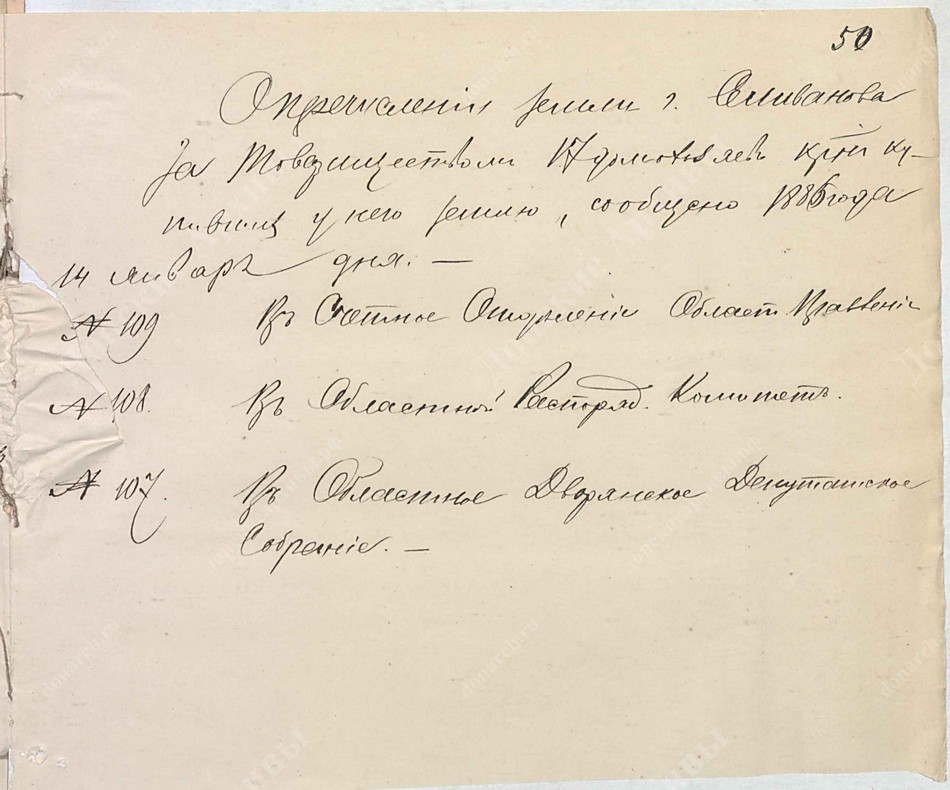 50
О перечислении земли г. Селиванова
за Товариществом 17 домохозяев кртн ку-
пивших у него землю, сообщено 1886 года
14 января дня. —
№ 109 Въ Счетное Отделеніе Област. Правленія
№ 108. Въ Областной Распоряд. Комитетъ.
№ 107. Въ Областное Дворянское Депутатское
Собраніе. —